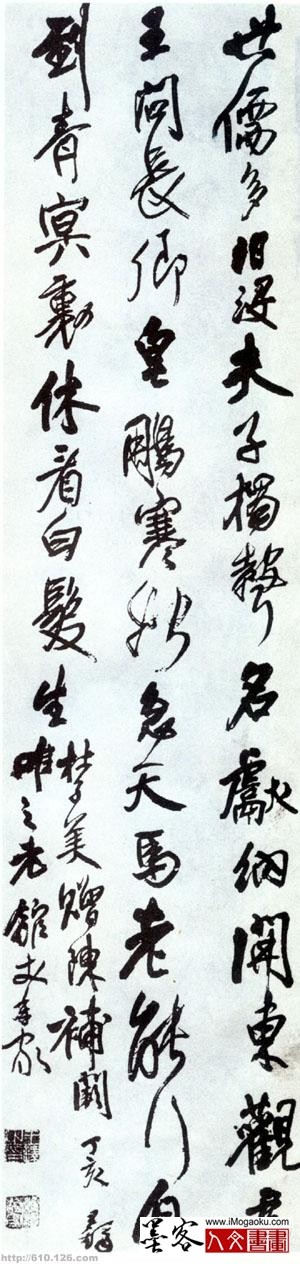 世儒多汩没夫子獨聲名獻納開東觀君
王問長卿皂鵰寒始急天馬老能行自
到青冥裏休看白髮生
杜子美贈陳補闕 丁亥
唯之老舘丈
墨客
www.iMogaoku.com
人文書畫
http://610.126.com